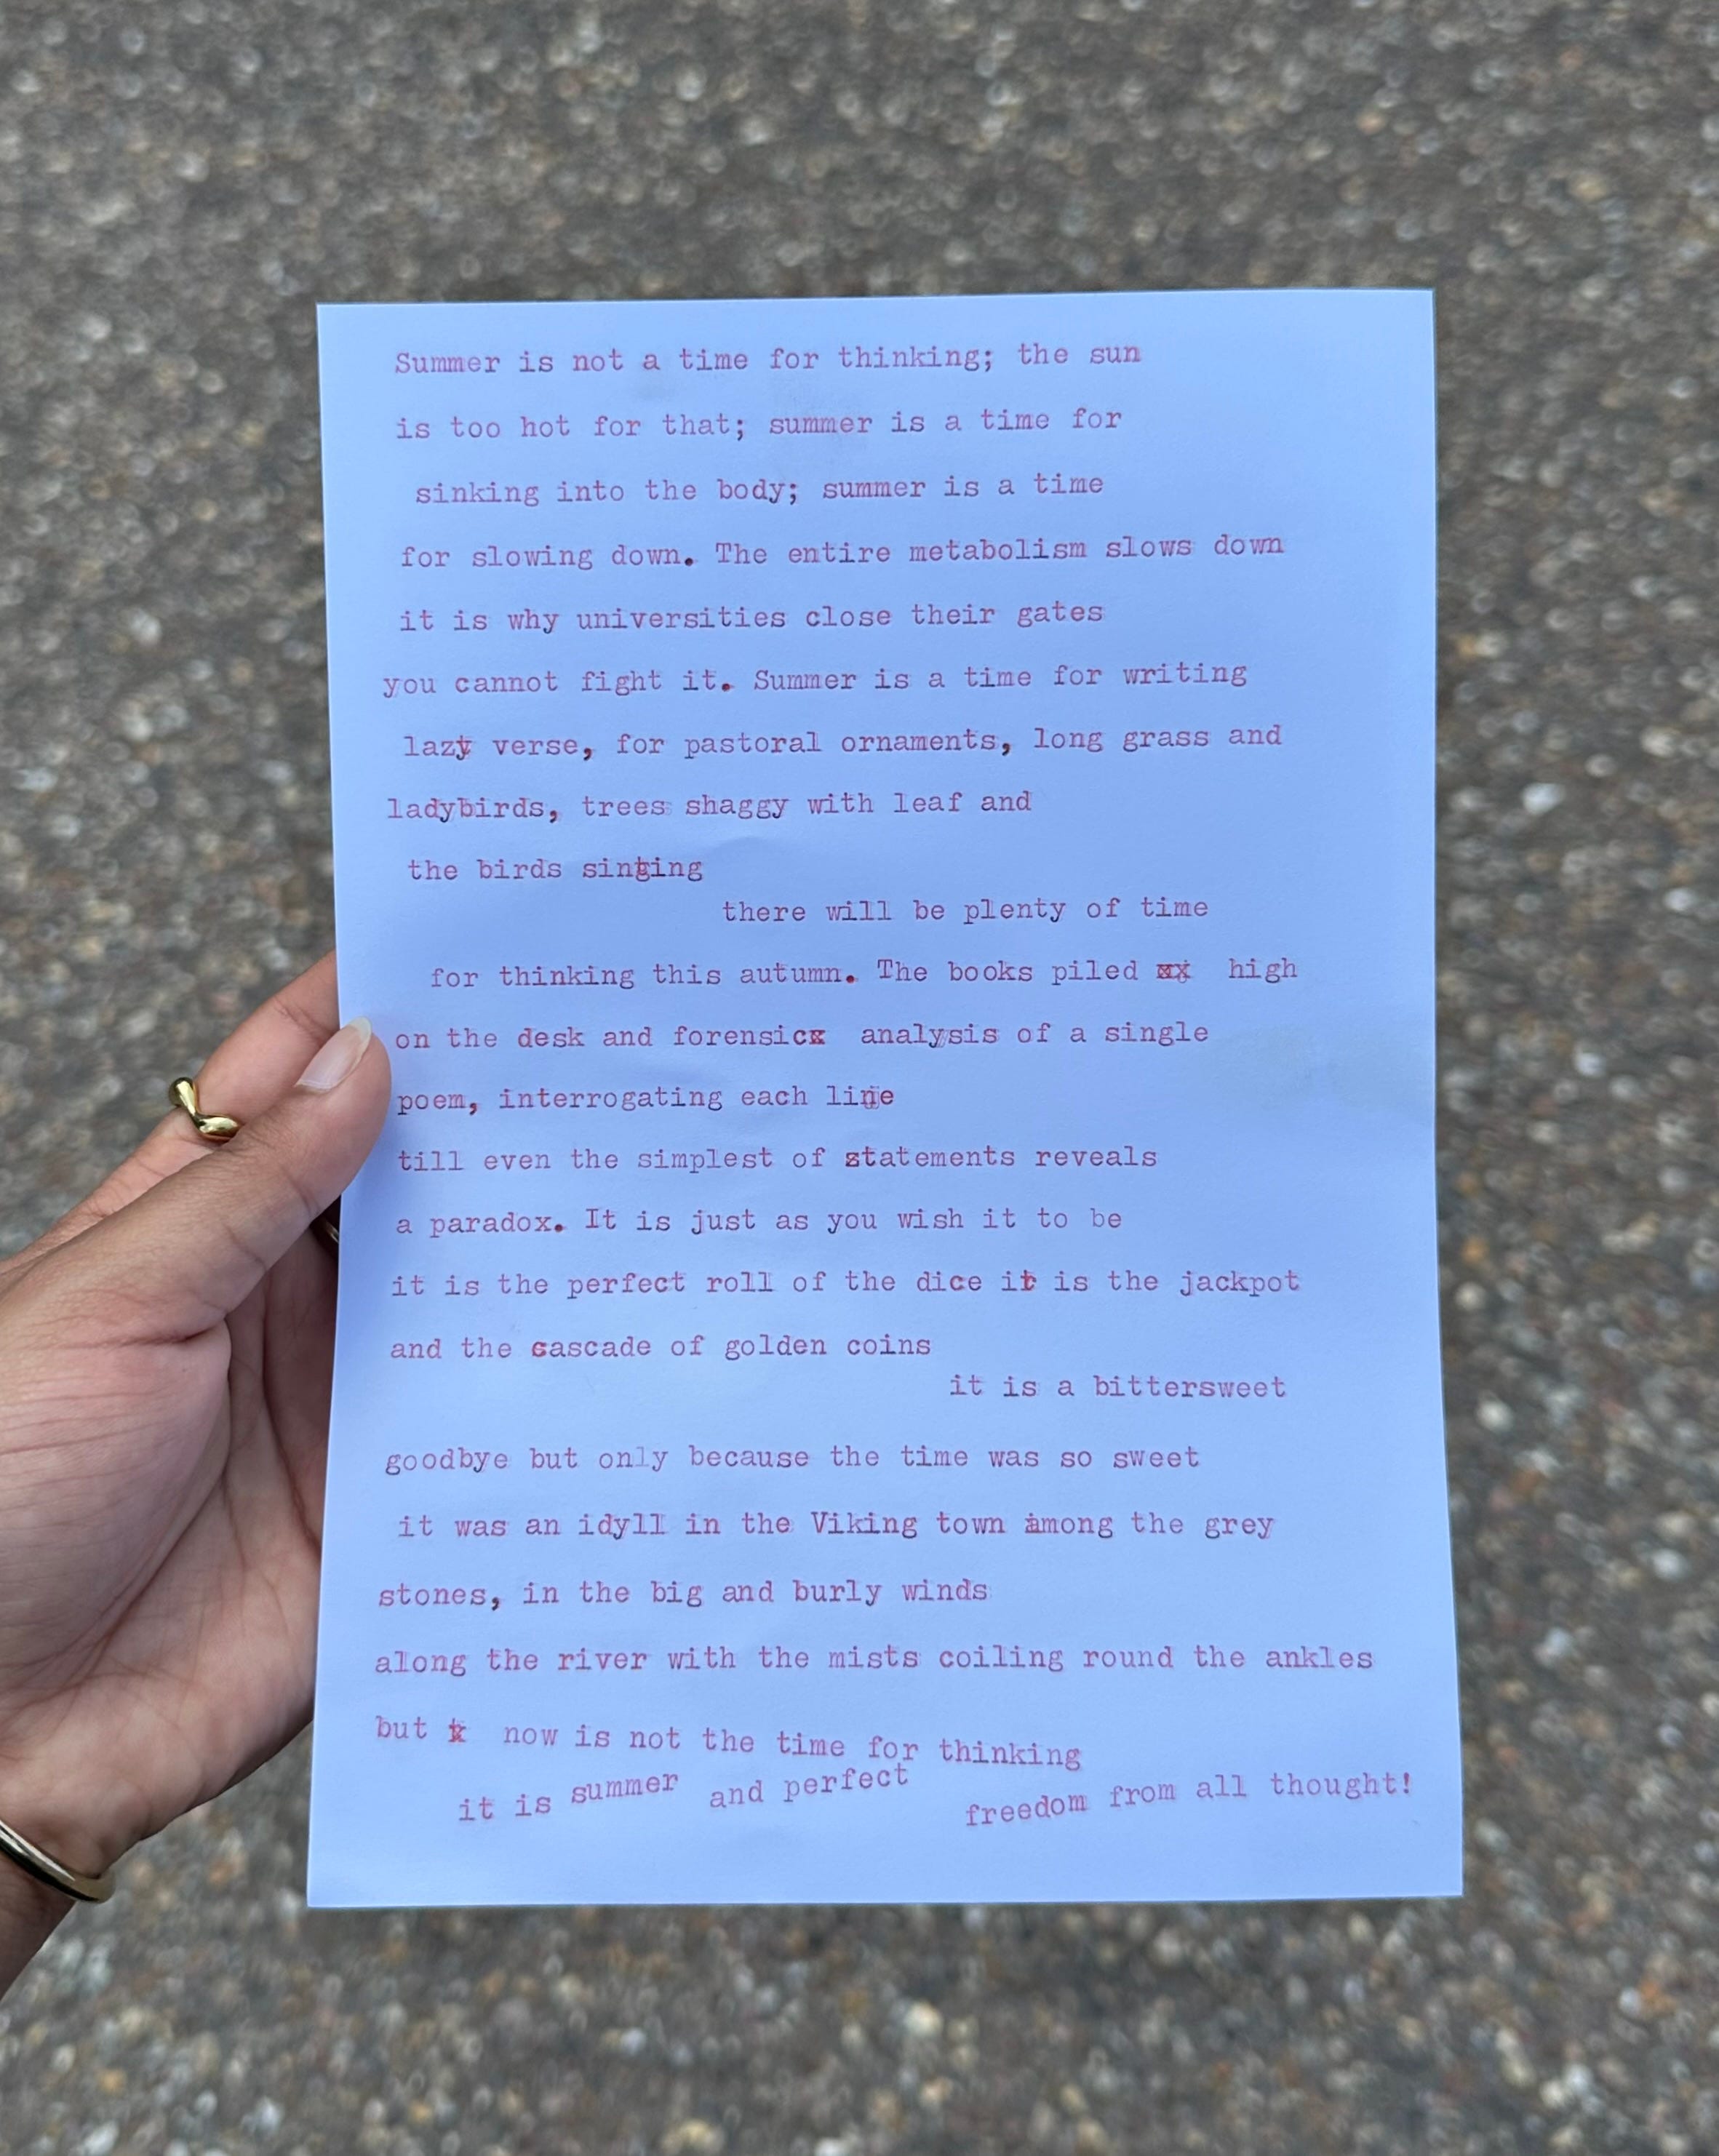 Summer is not a time for thinking; the sun
is too hot for that; summer is a time for
sinking into the body; summer is a time
for slowing down. The entire metabolism slows down
it is why universities close their gates
you cannot fight it. Summer is a time for writing
lazy verse, for pastoral ornaments, long grass and
ladybirds, trees shaggy with leaf and
the birds singing
there will be plenty of time
for thinking this autumn. The books piled high
on the desk and forensic analysis of a single
poem, interrogating each line
till even the simplest of statements reveals
a paradox. It is just as you wish it to be
it is the perfect roll of the dice it is the jackpot
and the cascade of golden coins
it is a bittersweet
goodbye but only because the time was so sweet
it was an idyll in the Viking town among the grey
stones, in the big and burly winds
along the river with the mists coiling round the ankles
but now is not the time for thinking
it is summer and perfect freedom from all thought!